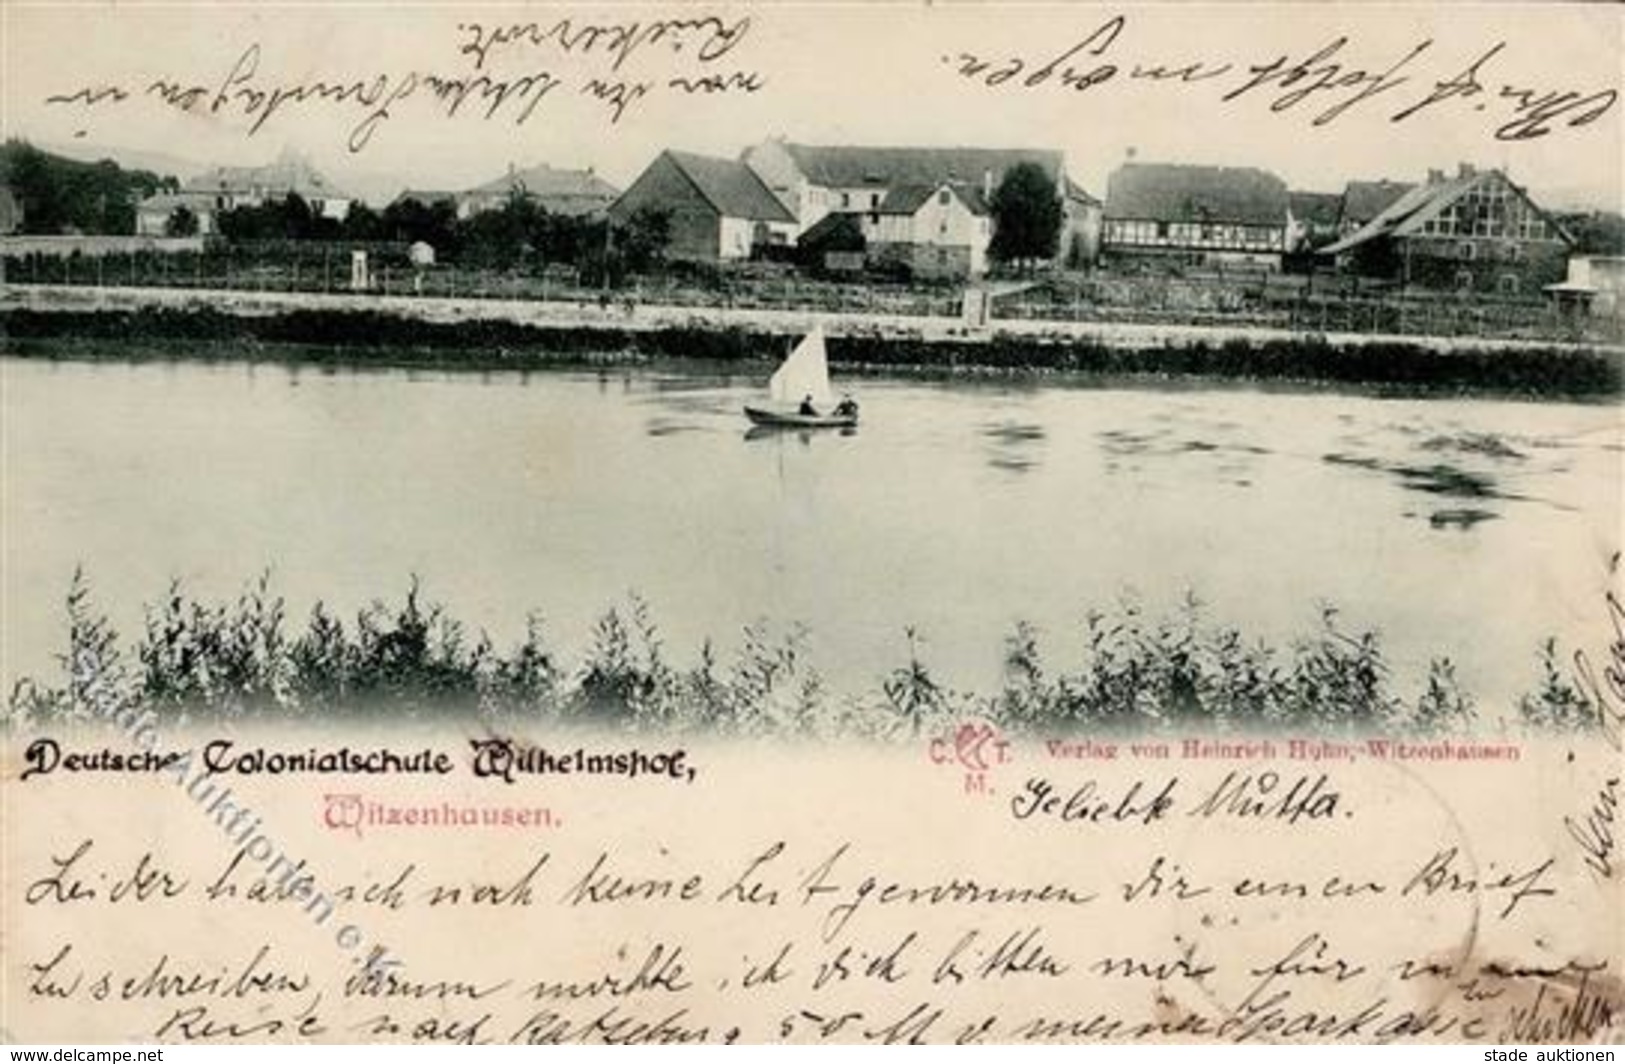 Deutsche Colonialschule Wilhelmshof,
Witzenhausen.
C. T.
M.
Verlag von Heinrich Huhn, Witzenhausen
Geliebte Mutta.
Leider habe ich noch keine Zeit gewonnen dir einen Brief
zu schreiben, darum möchte ich dich bitten mir für meine
Reise nach Ratzeburg 50 M v meiner Sparkasse zu schicken
Brief folgt morgen.
war den letzten Sonntag in
Rückerode.
dein
Stade Auktionen e.K.
delcampe.net
stade auktionen